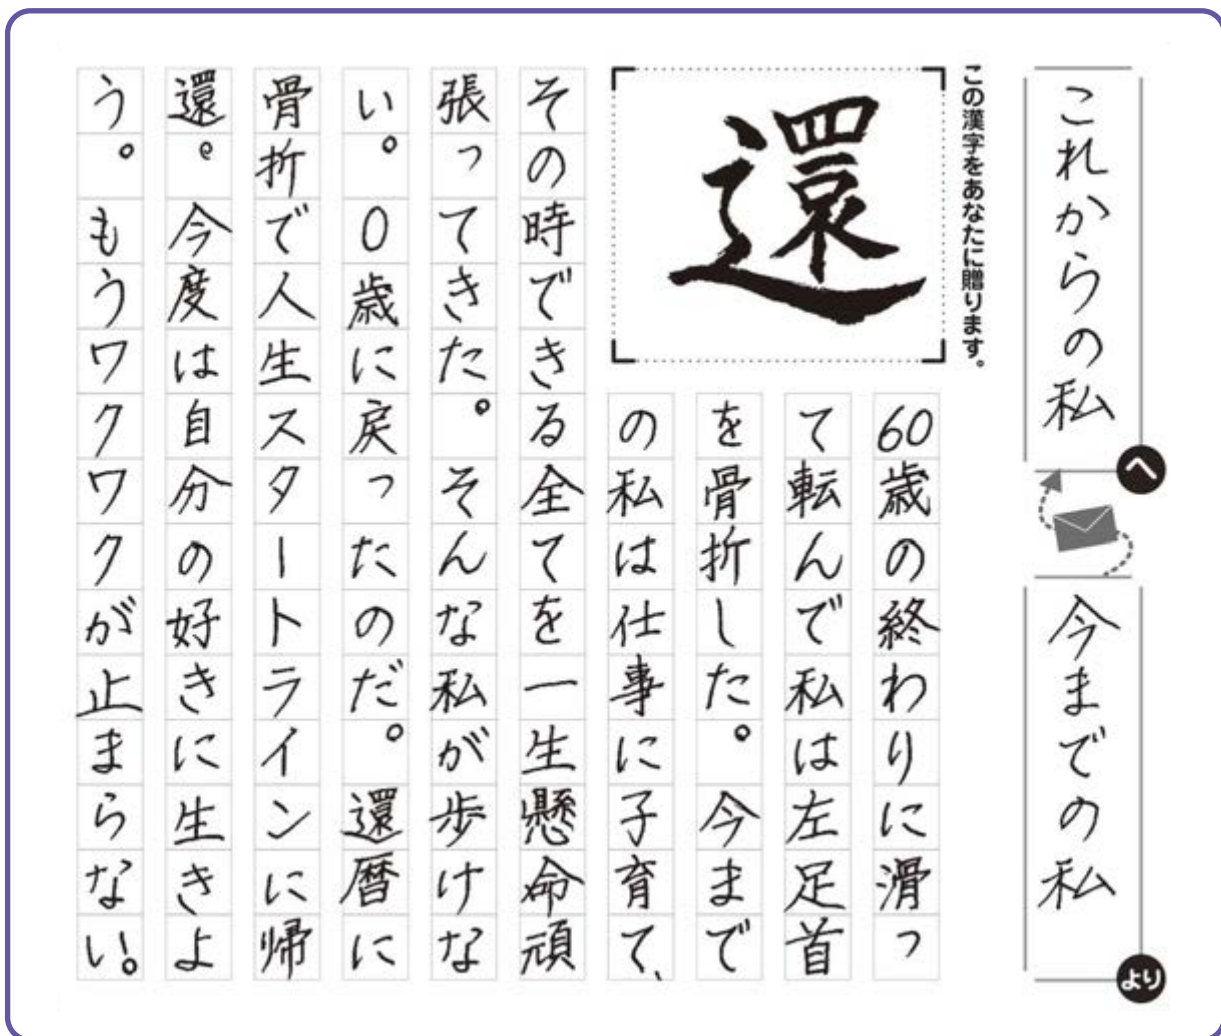 これからの私
へ
今までの私
より
この漢字をあなたに贈ります。
還
60歳の終わりに滑っ
て転んで私は左足首
を骨折した。今まで
の私は仕事に子育て、
その時できる全てを一生懸命頑
張ってきた。そんな私が歩けな
い。0歳に戻ったのだ。還暦に
骨折で人生スタートラインに帰
還。今度は自分の好きに生きよ
う。もうワクワクが止まらない。